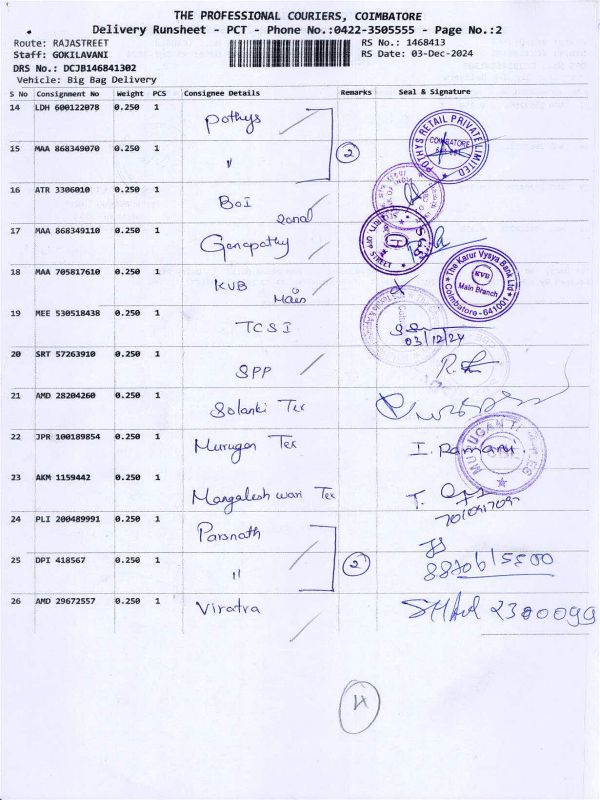 THE PROFESSIONAL COURIERS, COIMBATORE
Delivery Runsheet - PCT - Phone No.:0422-3505555 - Page No.:2
Route: RAJASTREET RS No.: 1468413
Staff: GOKILAVANI RS Date: 03-Dec-2024
DRS No.: DCJB146841302
Vehicle: Big Bag Delivery
S No Consignment No Weight PCS Consignee Details Remarks Seal & Signature
14 LDH 600122078 0.250 1 Pothys
POTHYS RETAIL PRIVATE LIMITED
COIMBATORE
15 MAA 868349070 0.250 1 " 2
16 ATR 3306010 0.250 1 BOI
Zonal
17 MAA 868349110 0.250 1 Ganapathy
18 MAA 705817610 0.250 1 KVB
Main
The Karur Vysya Bank Ltd
KVB
Main Branch
Coimbatore - 641001
19 MEE 530518438 0.250 1 TCSI
03/12/24
20 SRT 57263910 0.250 1 SPP
21 AMD 28204260 0.250 1 Solanki Tex
22 JPR 100189854 0.250 1 Murugan Tex I. Ramani.
23 AKM 1159442 0.250 1 Mangaleshwari Tex T.
24 PLI 200489991 0.250 1 Parsnath
25 DPI 418567 0.250 1 " 2
26 AMD 29672557 0.250 1 Viratra 2300099